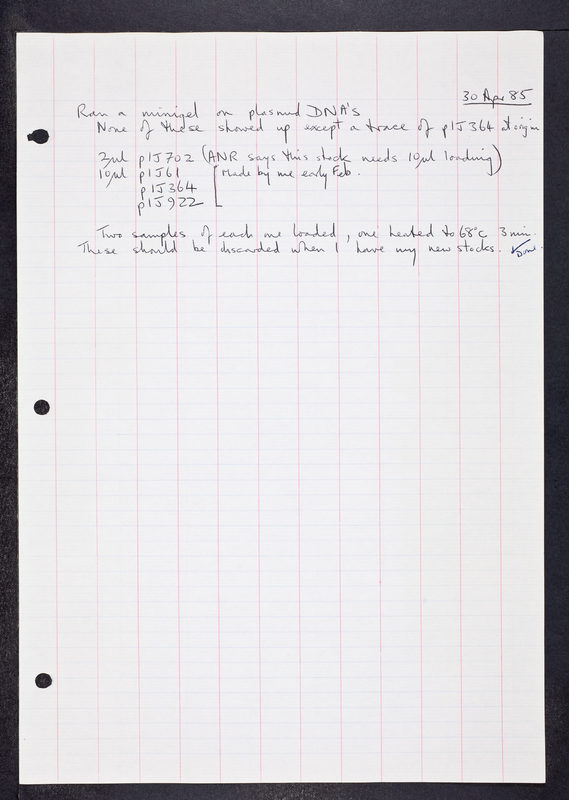 30 Apr 85
Ran a minigel on plasmid DNA's
None of these showed up except a trace of pIJ364 at origin
2µl pIJ702 (ANR says this stock needs 10µl loading)
10µl pIJ61 [Made by me early Feb.
pIJ364
pIJ922
Two samples of each one loaded, one heated to 68°C 3 min.
These should be discarded when I have my new stocks. ✓Done.